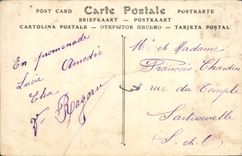 POST CARD Carte Postale POSTKARTE
BRIEFKAART — POSTKAART
CARTOLINA POSTALE — ОТКРЫТОЕ ПИСЬМО — TARJETA POSTAL
En promenade
Lucie Amédée
F. Ragaru
Mr et Madame
François Chardin
rue du Temple
Sartrouville
S. et O.